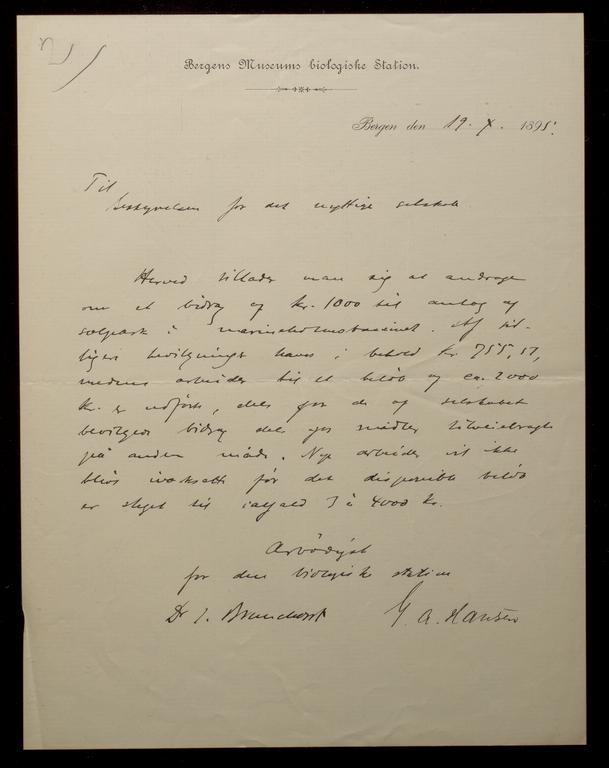 Bergens Museums biologiske Station.
Bergen den 19. X. 1895.
Til
bestyrelsen for det nyttige selskab.
Herved tillader man sig at andrage
om et bidrag af kr. 1000 til anlæg af
sælpark i marineholmsbassinet. Af tid-
ligere bevilgninger haves i behold kr. 755,51,
medens arbeider til et beløb af ca. 2000
kr. er udført, dels for de af selskabet
bevilgede bidrag dels for midler tilveiebragte
på anden måde. Nye arbeider vil ikke
blive iværksatte før det disponible beløb
er steget til ialfald 3 à 4000 kr.
Ærbødigst
for den biologiske station
Dr J. Brunchorst G. A. Hansen